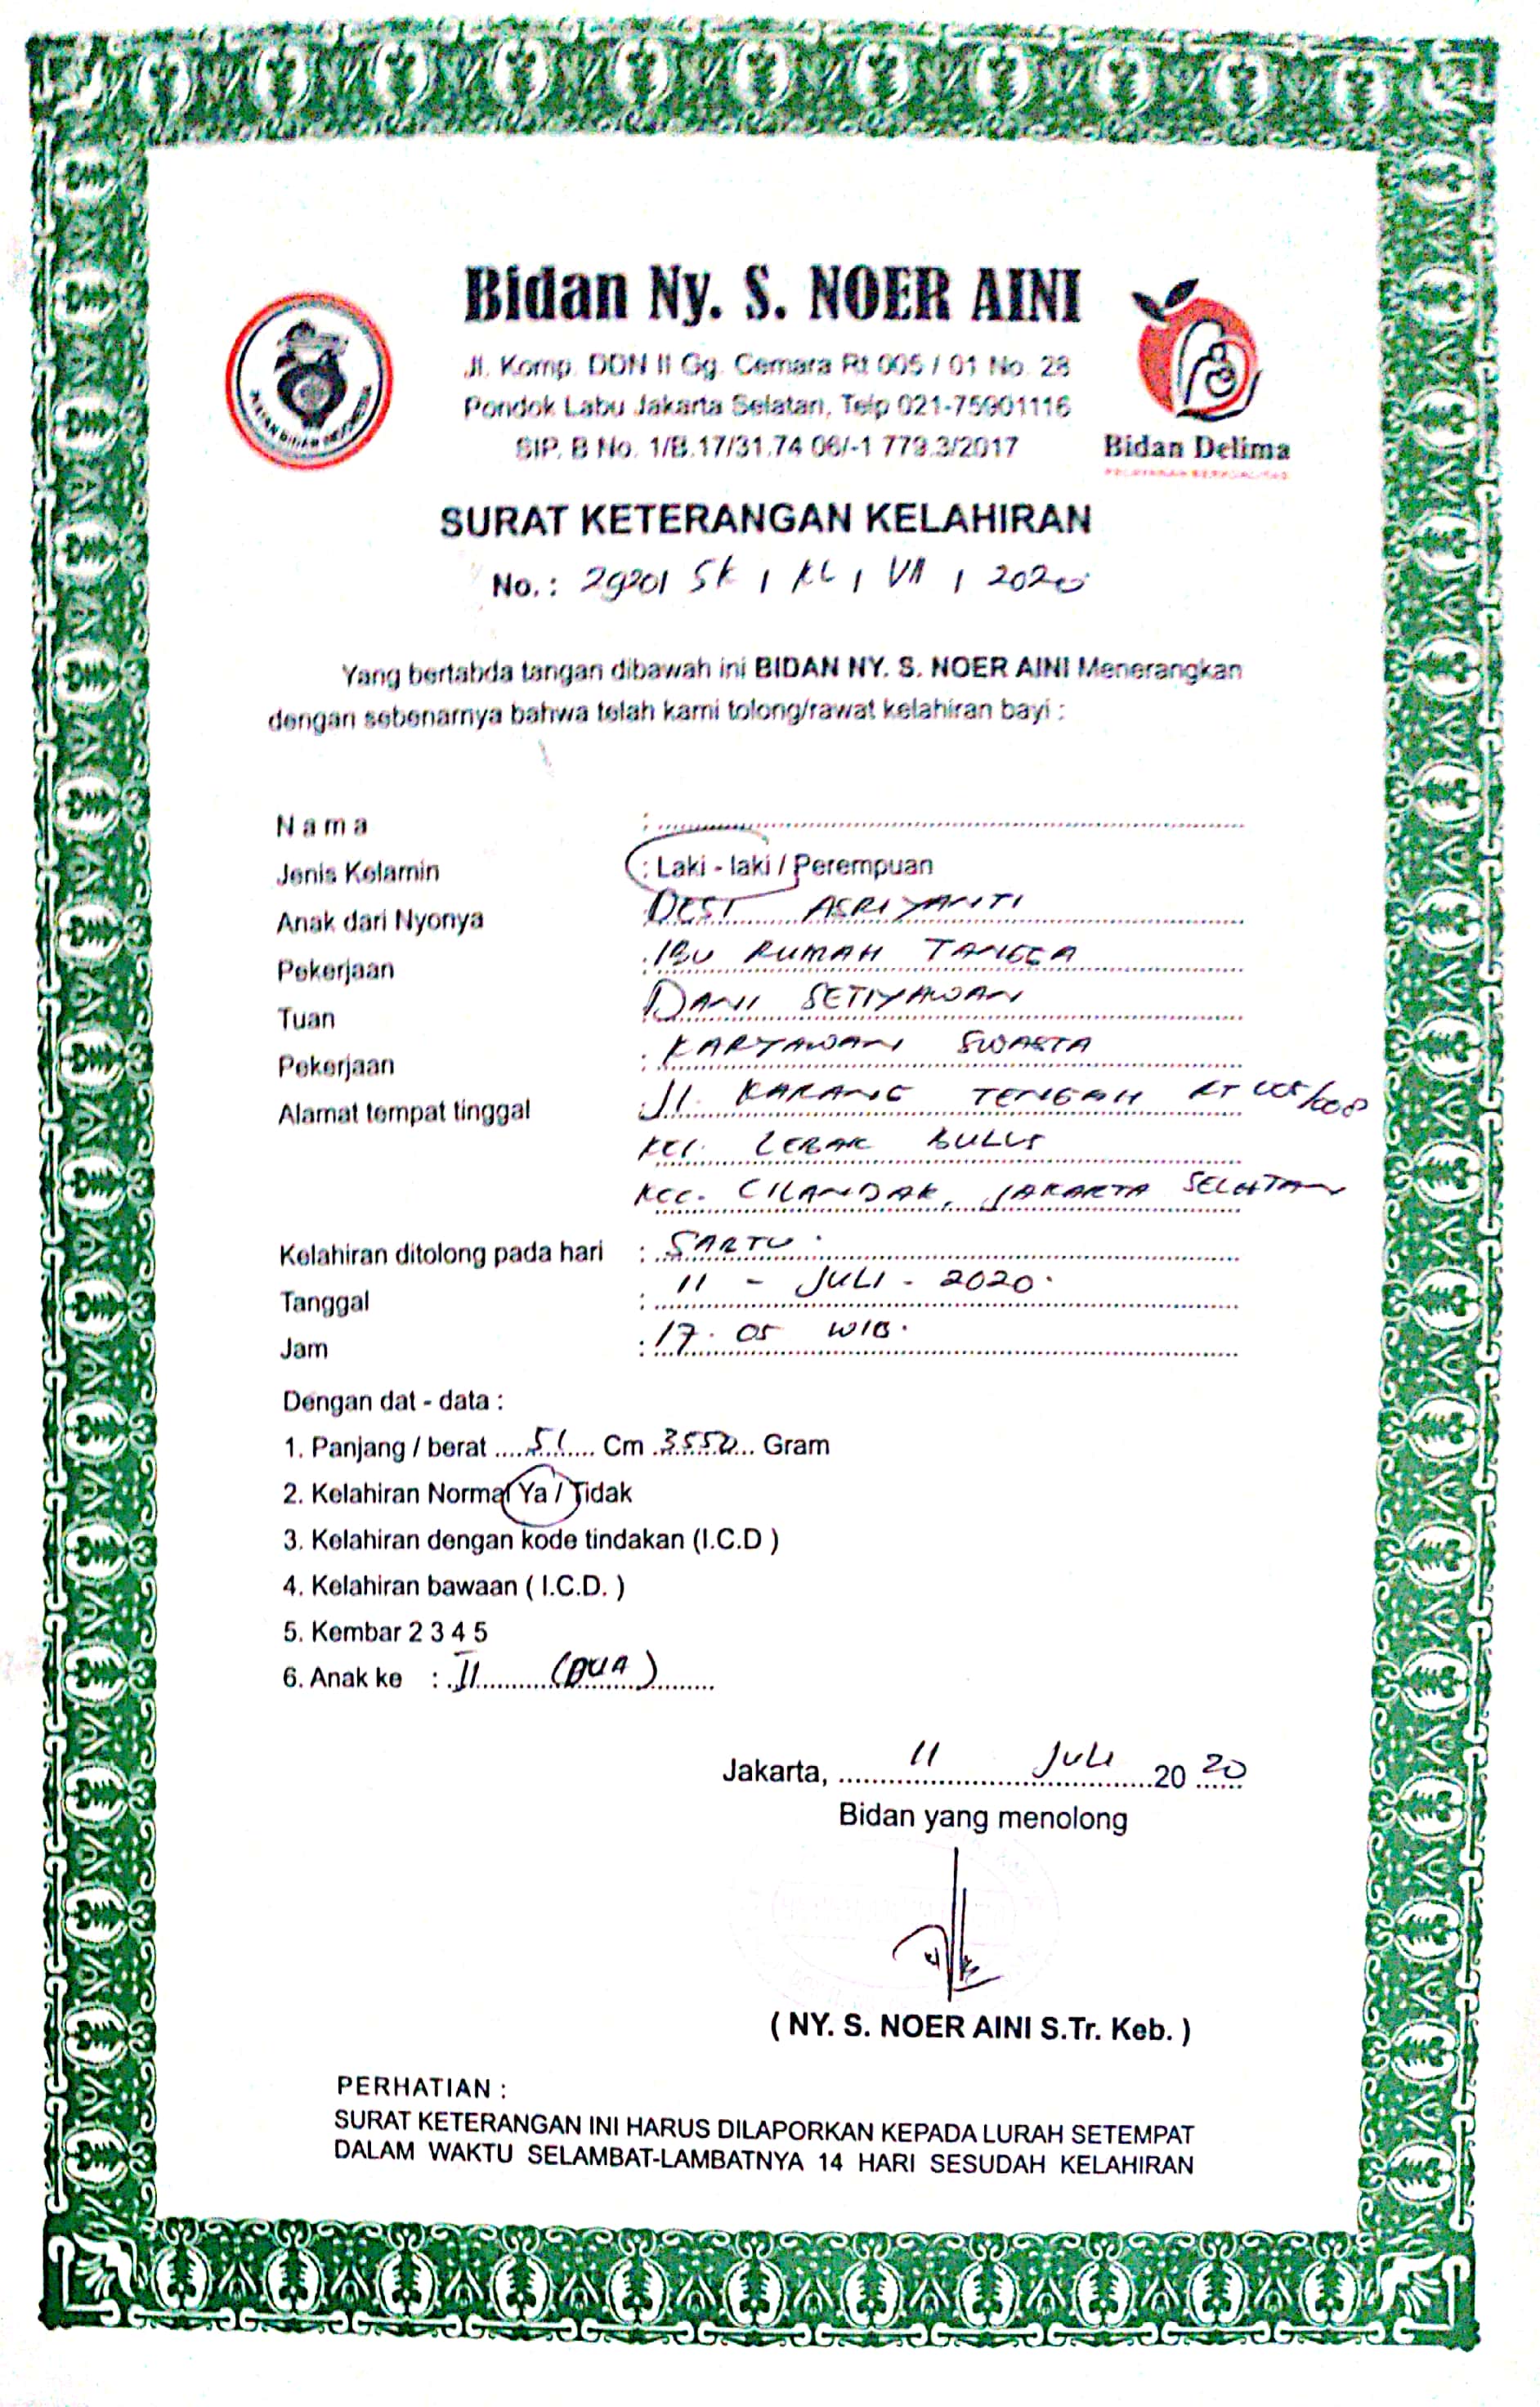 Bidan Ny. S. NOER AINI
Jl. Komp. DDN II Gg. Cemara Rt 005 / 01 No. 28
Pondok Labu Jakarta Selatan, Telp 021-75901116
SIP. B No. 1/B.17/31.74 06/-1 779.3/2017
IKATAN BIDAN INDONESIA
Bidan Delima
PELAYANAN BERKUALITAS
SURAT KETERANGAN KELAHIRAN
No. : SK / KL / VII / 2020
Yang bertabda tangan dibawah ini BIDAN NY. S. NOER AINI Menerangkan
dengan sebenarnya bahwa telah kami tolong/rawat kelahiran bayi :
Nama :
Jenis Kelamin : Laki - laki / Perempuan
Anak dari Nyonya DESI ASRIYANTI
Pekerjaan : IBU RUMAH TANGGA
Tuan DANI SETIYAWAN
Pekerjaan : KARYAWAN SWASTA
Alamat tempat tinggal : Jl. KARANG TENGAH RT 005/008
KEL. LEBAK BULUS
KEC. CILANDAK, JAKARTA SELATAN
Kelahiran ditolong pada hari : SABTU.
Tanggal : 11 - JULI - 2020.
Jam : 17.05 WIB.
Dengan dat - data :
1. Panjang / berat 51 Cm 3550 Gram
2. Kelahiran Normal Ya / Tidak
3. Kelahiran dengan kode tindakan (I.C.D )
4. Kelahiran bawaan ( I.C.D. )
5. Kembar 2 3 4 5
6. Anak ke : II (DUA)
Jakarta, 11 JULI 20 20
Bidan yang menolong
( NY. S. NOER AINI S.Tr. Keb. )
PERHATIAN :
SURAT KETERANGAN INI HARUS DILAPORKAN KEPADA LURAH SETEMPAT
DALAM WAKTU SELAMBAT-LAMBATNYA 14 HARI SESUDAH KELAHIRAN